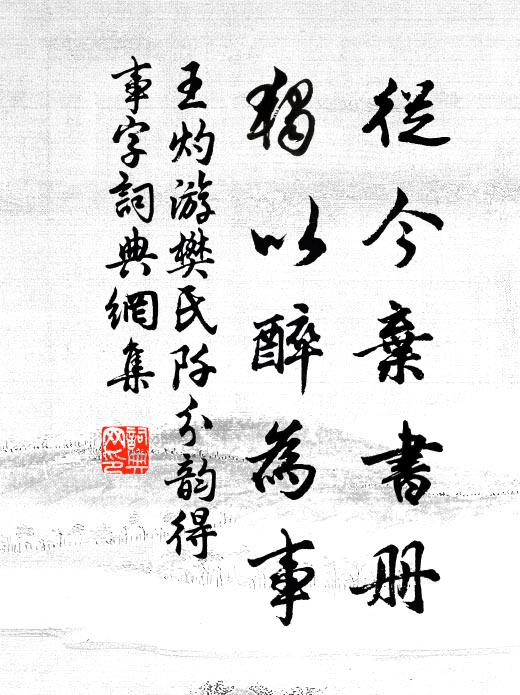 從今棄書册
獨以醉為事
王灼游樊氏阡分韵得
事字詞典網集
詞典网印